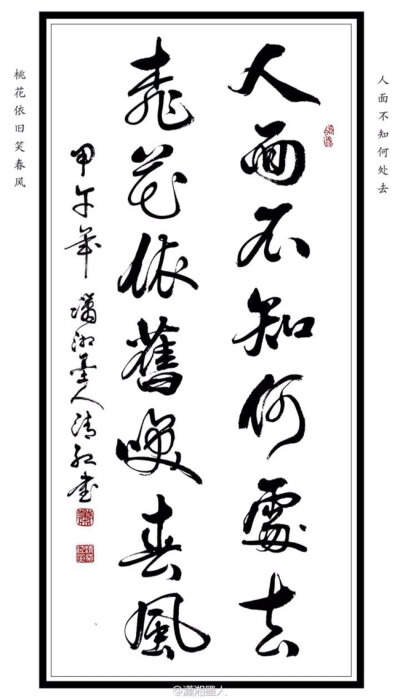 人面不知何处去
人面不知何處去
桃花依舊咲春風
甲午年 瀟湘墨人清紅书
桃花依旧笑春风
@瀟湘墨人